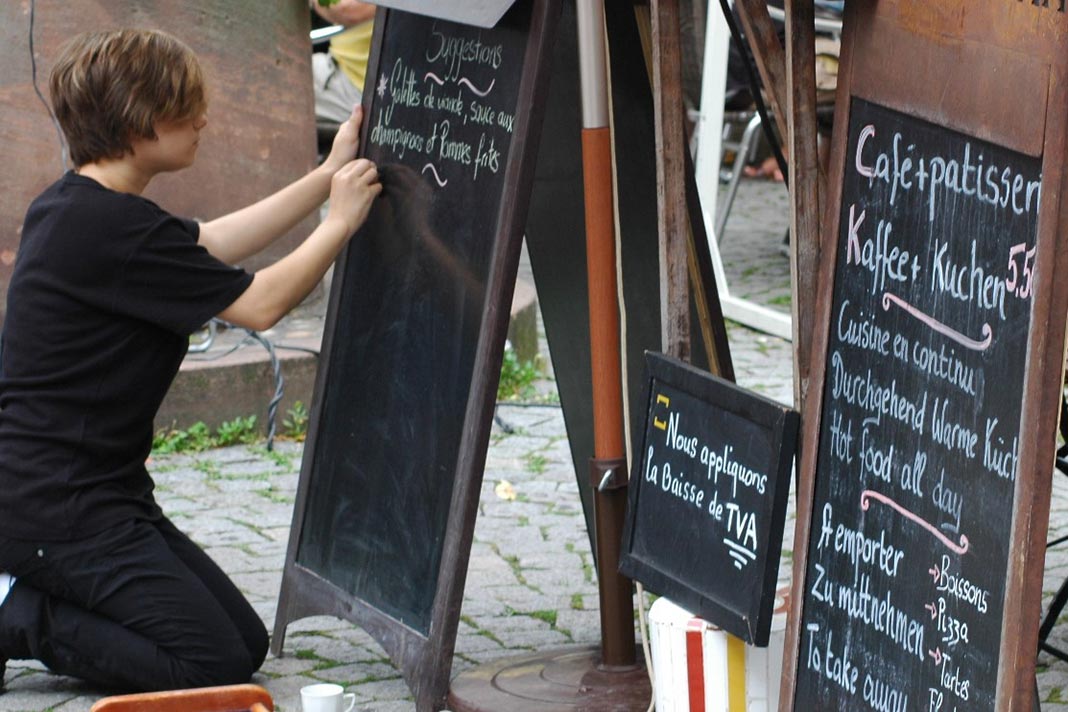 Suggestions
* Galettes de viande, sauce aux
champignons et Pommes frites
Nous appliquons
la Baisse de TVA
Café+patisseri
Kaffee+ Kuchen 5,5
Cuisine en continu
Durchgehend Warme Küch
Hot food all day
A emporter
Zu mittnehmen
To take away
→Boissons
→Pizza
→Tartes